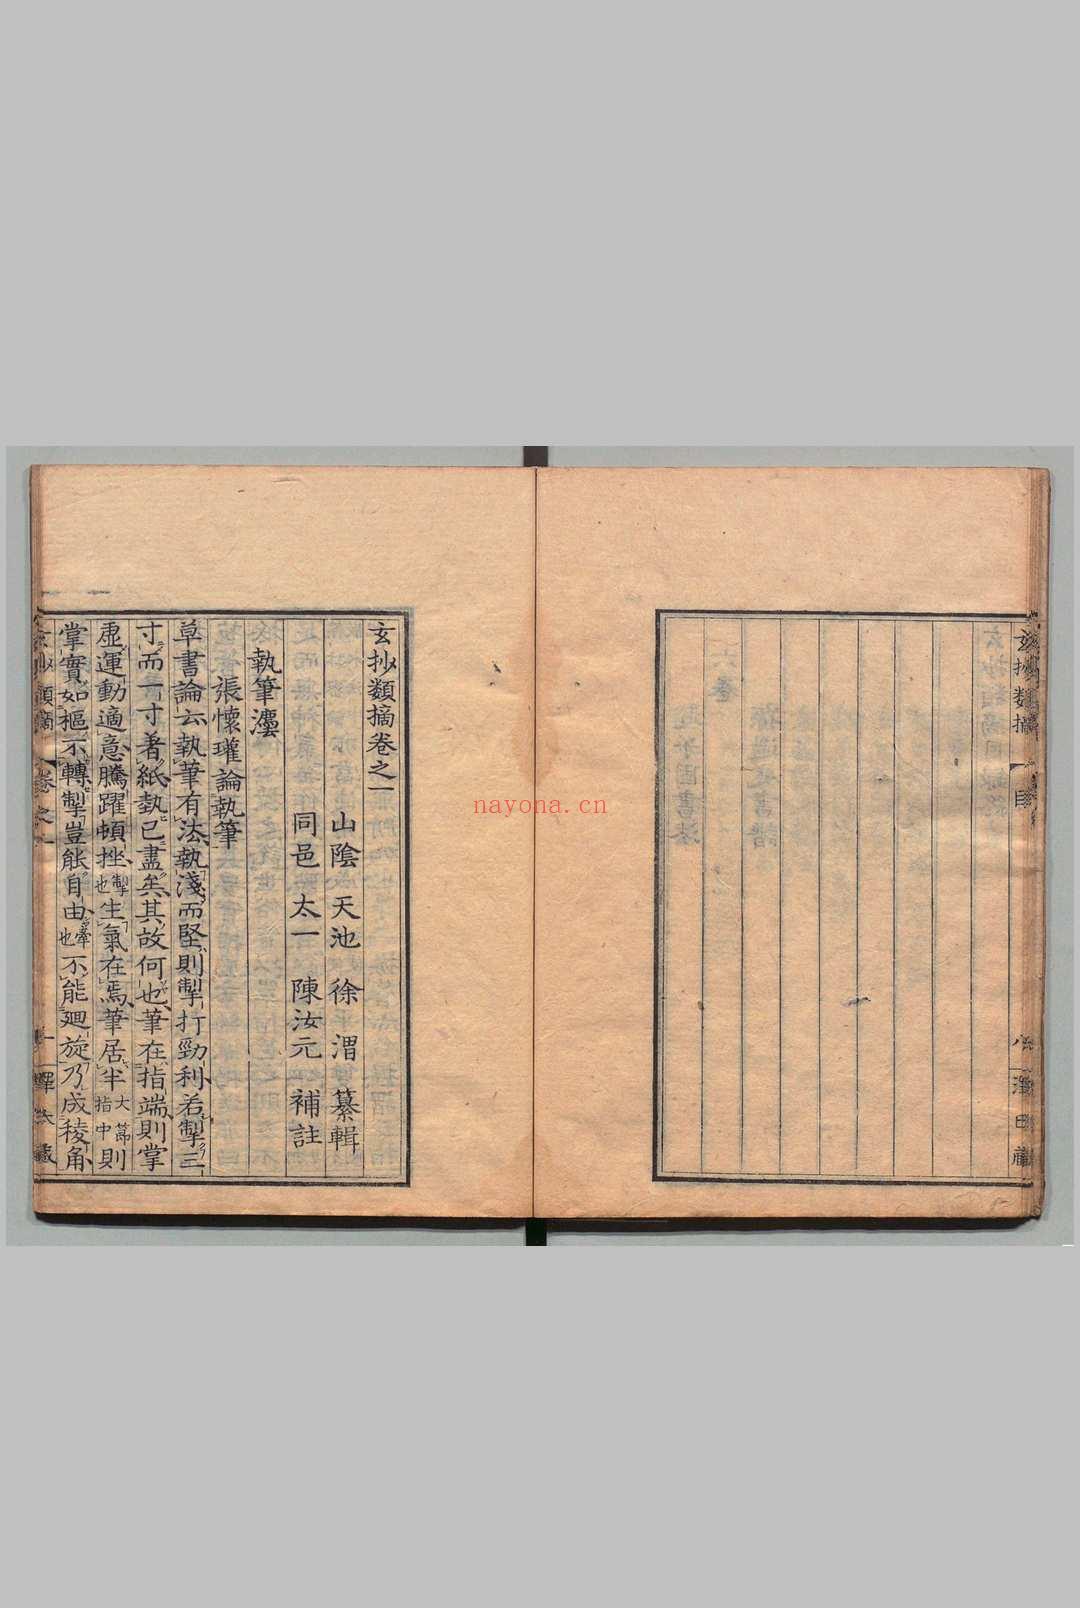 玄抄類摘
目
澤田藏
玄抄類摘卷之一
山陰天池 徐渭 纂輯
同邑太一 陳汝元 補註
執筆灋
張懷瓘論執筆
草書論云執筆有法執淺而堅則掣打勁利若掣三
寸而一寸著紙埶已盡矣其故何也筆在指端則掌
虛運動適意騰躍頓挫掣也生氣在焉筆居半大節中指則
掌實如樞不轉掣豈能自由牽也不能廻旋乃成稜角
nayona.cn